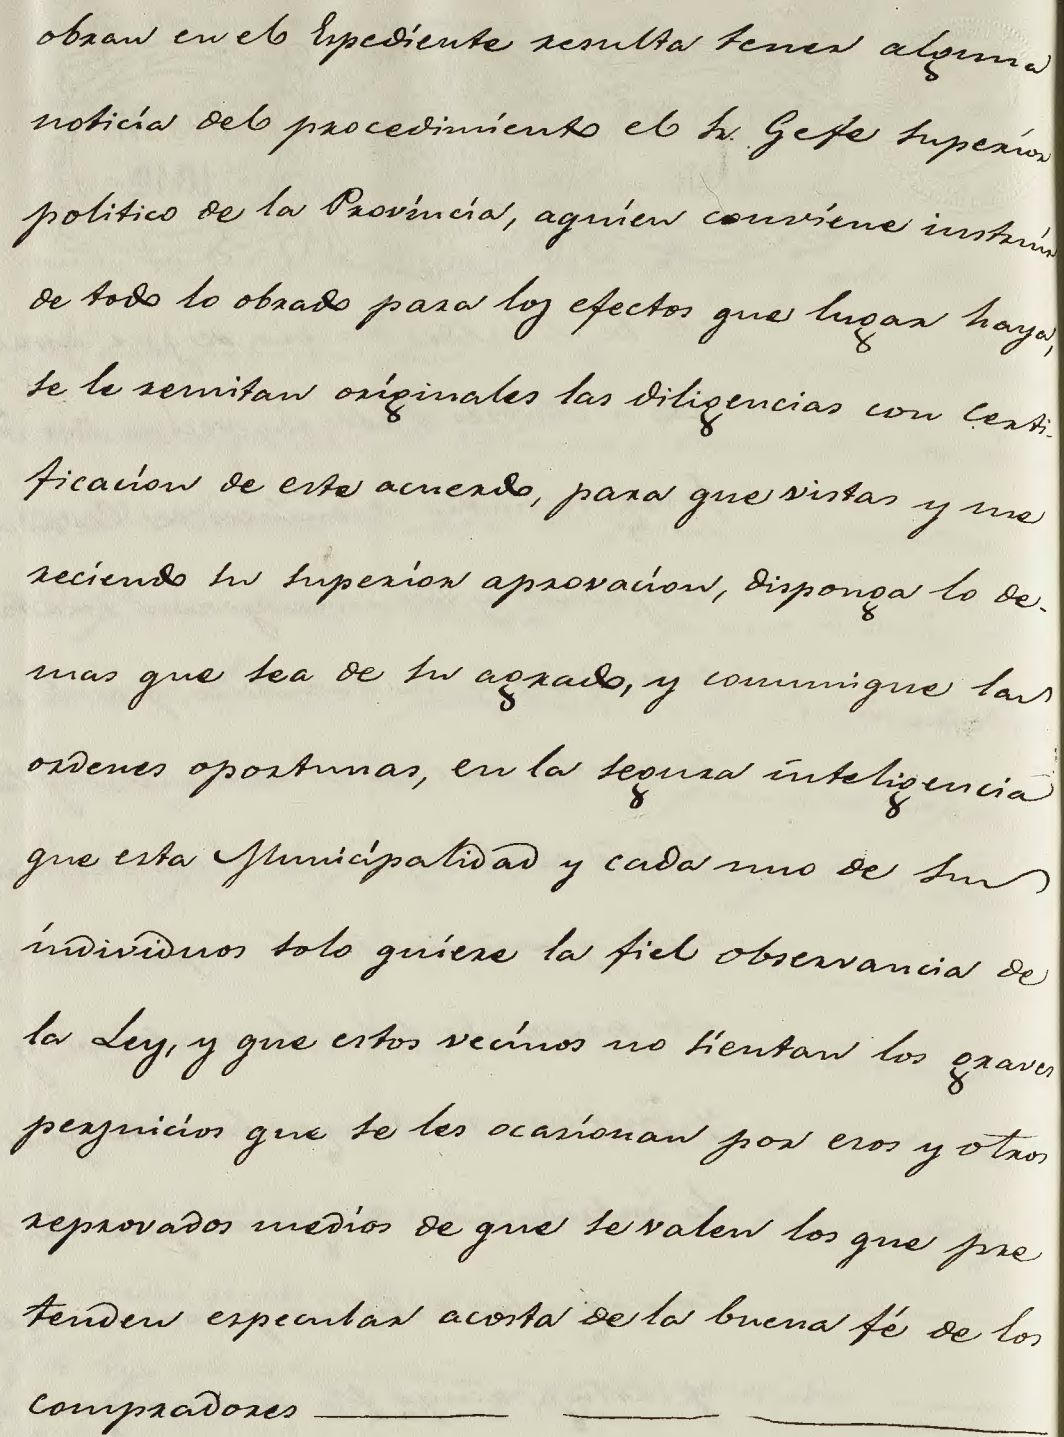 obran en el Espediente resulta tener alguna
noticia del procedimiento el Sr. Gefe Superior
politico de la Provincia, aquien conviene instruir
de todo lo obrado para los efectos que lugar haya,
se le remitan originales las diligencias con Certi-
ficacion de este acuerdo, para que vistas y me
reciendo su superior aprovacion, disponga lo de-
mas que sea de su agrado, y comunique las
ordenes oportunas, en la segura inteligencia
que esta Municipalidad y cada uno de sus
individuos solo quiere la fiel observancia de
la Ley, y que estos vecinos no sientan los graves
perjuicios que se les ocasionan por esos y otros
reprovados medios de que se valen los que pre
tenden especular acosta de la buena fé de los
compradores